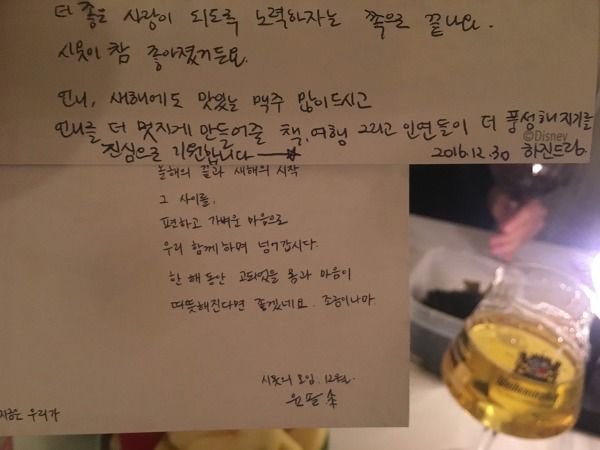 더 좋은 사랑이 되도록 노력하자는 쪽으로 끝나요.
시옷이 참 좋아졌거든요.
언니, 새해에도 맛있는 맥주 많이드시고
언니를 더 멋지게 만들어줄 책, 여행 그리고 인연들이 더 풍성해지기를
진심으로 기원합니다
©Disney
2016.12.30 하진드림.
올해의 끝과 새해의 시작
그 사이를,
편하고 가벼운 마음으로
우리 함께하며 넘어갑시다.
한 해 동안 고되었을 몸과 마음이
따뜻해진다면 좋겠네요. 조금이나마
시옷의 모임. 12월.
지금은 우리가